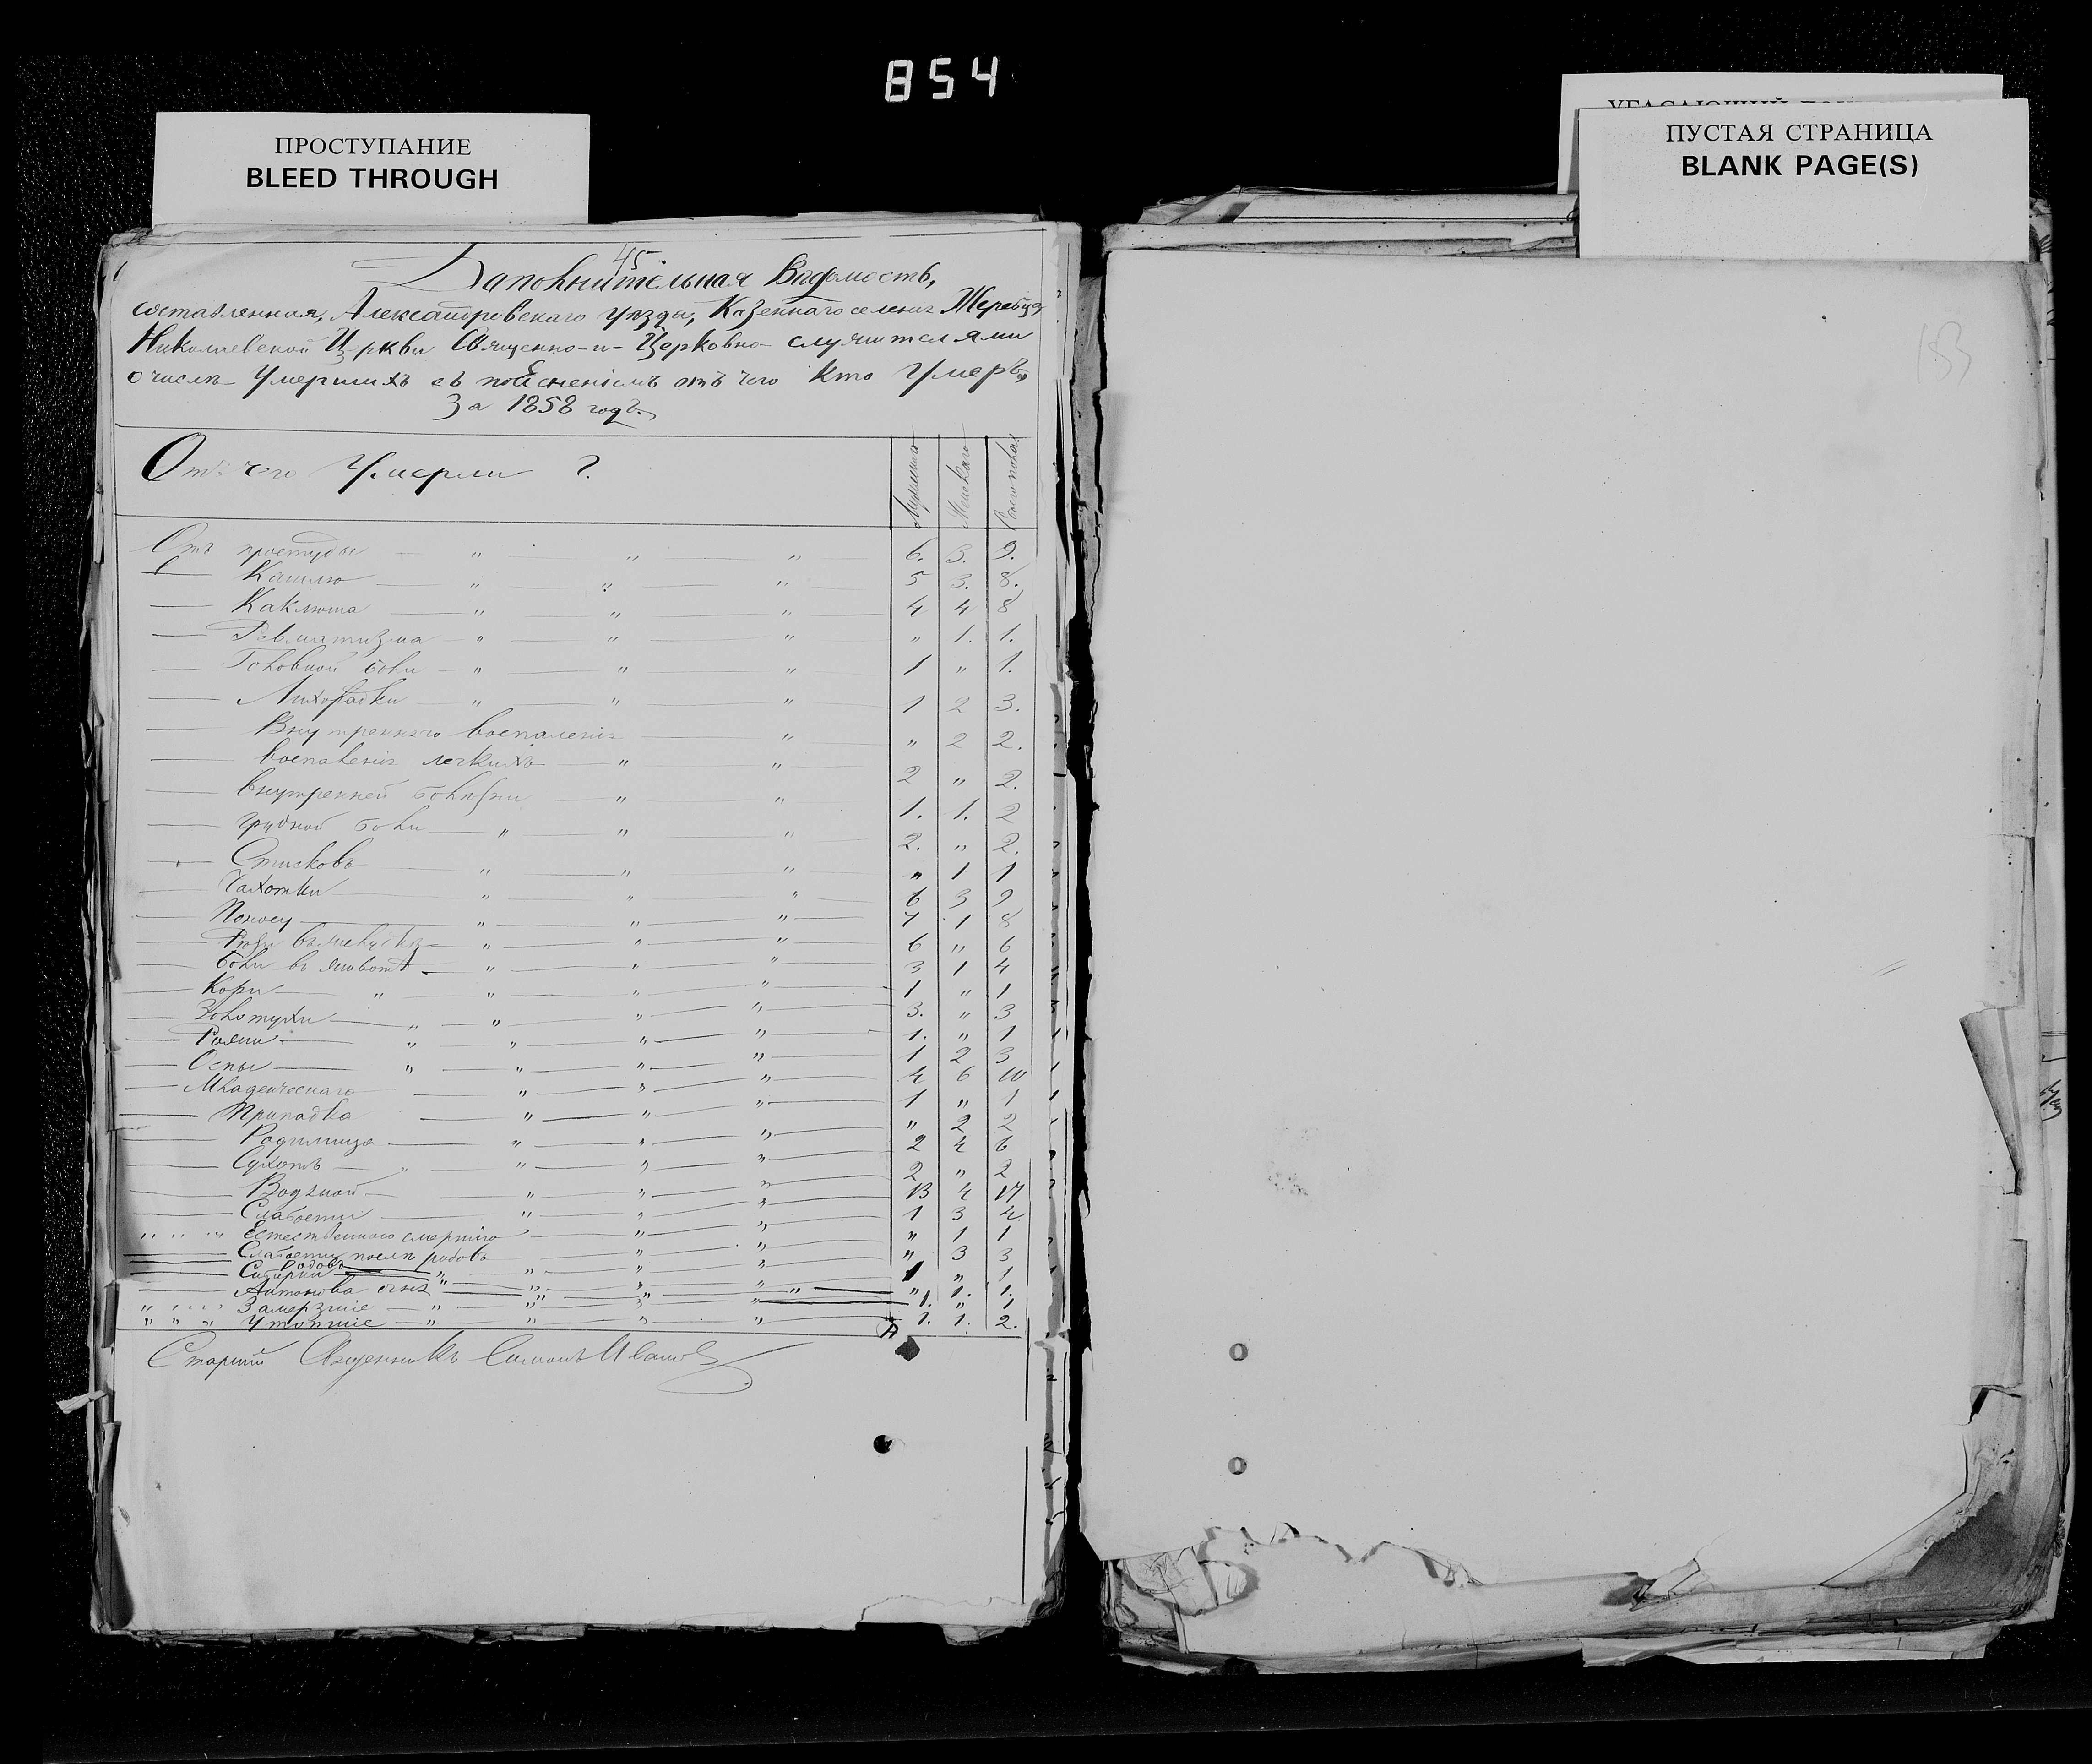 854
ПРОСТУПАНИЕ
BLEED THROUGH
ПУСТАЯ СТРАНИЦА
BLANK PAGE(S)
45
Дополнительная Вѣдомость,
составленная, Александровскаго уѣзда, Казеннаго селенія Жеребца
Николаевской Церкви Священно-и-Церковно-служителями
о числѣ Умершихъ съ поясненіемъ отъ чего кто Умеръ,
За 1858 годъ.
Отъ чего Умерли ? Мужеска Женскаго
Отъ простуды — „ — „ — „ 6. 3. 9.
— Кашлю — „ — „ — „ — 5 3. 8.
— Коклюша — „ — „ — „ — 4 4 8
— Ревматизма — „ — „ — „ — „ 1. 1.
— Головной боли — „ — „ — „ — 1 „ 1.
— Лихорадки — „ — „ — „ — 1 2 3.
— Внутренняго воспаленія — „ — „ 2 2.
— воспаленія легкихъ — „ — „ — 2 „ 2.
— внутренней боли — „ — „ — 1. 1. 2
— грудной боли — „ — „ — „ — 2. „ 2.
— „ — „ — „ — „ 1 1
— Чахотки — „ — „ — „ — 6 3 9
— Поносу — „ — „ — „ — 7 1 8
— „ — „ — „ — 6 „ 6
— боли въ животѣ — „ — „ — „ — 3 1 4
— Кори — „ — „ — „ — „ — 1 „ 1
— Золотухи — „ — „ — „ — „ — 3. „ 3
— Рожи — „ — „ — „ — „ — 1. „ 1
— Оспы — „ — „ — „ — „ — 1 2 3
— Младенческаго — „ — „ — „ — 4 6 10
— Припадка — „ — „ — „ — 1 „ 1
— Родимица — „ — „ — „ — „ 2 2
— Сухотъ — „ — „ — „ — „ — 2 4 6
— Водяной — „ — „ — „ — 2 „ 2
— Слабости — „ — „ — „ — 13 4 17
„ „ „ „ Естественного смертію — „ — „ — 1 3 4.
— Слабости послѣ родовъ — „ — „ — „ 1 1
— Родовъ — „ — „ — „ — „ 3 3
— Сибирки — „ — „ — „ — 1 „ 1
— Антонова огня — „ — „ — „ — „ 1. 1.
„ „ „ „ Замерзшіе — „ — „ — „ — 1. „ 1
„ „ „ „ Утопшіе — „ — „ — „ — „ — 1. 1. 2.
Старшій Священникъ Симонъ
153